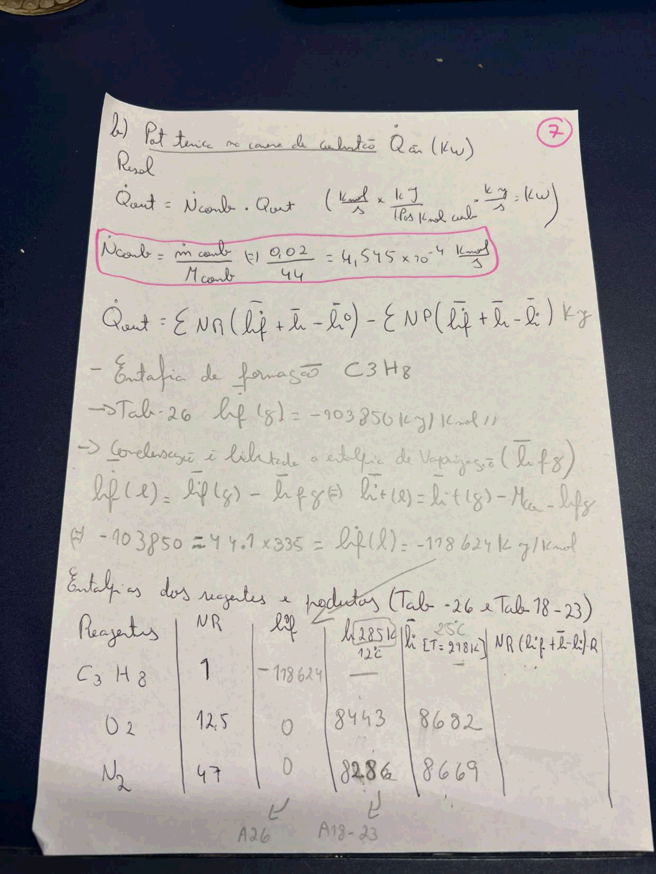 7
b) Pot termica na camara de combustão Q̇out (KW)
Resol
Q̇out = Ṅcomb . Qout (Kmol/s × KJ/1Ps Kmol comb = KJ/s = KW)
Ṅcomb = ṁ comb/M comb (=) 0,02/44 = 4,545 × 10⁻⁴ Kmol/s
Q̇out = Σ NR (h̄f + h̄ - h̄⁰) - Σ NP (h̄f + h̄ - h̄) KJ
- Entalpia de formação C3H8
→ Tab-26 h̄f (g) = -103850 KJ/Kmol //
→ Condensação é libertada a entalpia de Vaporização (h̄fg)
h̄f (l) = h̄f (g) - h̄fg (=) h̄f (l) = h̄f (g) - M - hfg
(=) -103850 = 44.1 × 335 = h̄f (l) = -118624 KJ/Kmol
Entalpias dos reagentes e produtos (Tab-26 e Tab 18-23)
Reagentes | NR | h̄f | h̄ 285K 12°C | h̄ 25°C [T=298K] | NR (h̄f + h̄ - h̄).R
C3H8 | 1 | -118624 | — | —
O2 | 12,5 | 0 | 8443 | 8682
N2 | 47 | 0 | 8286 | 8669
A26 A18-23